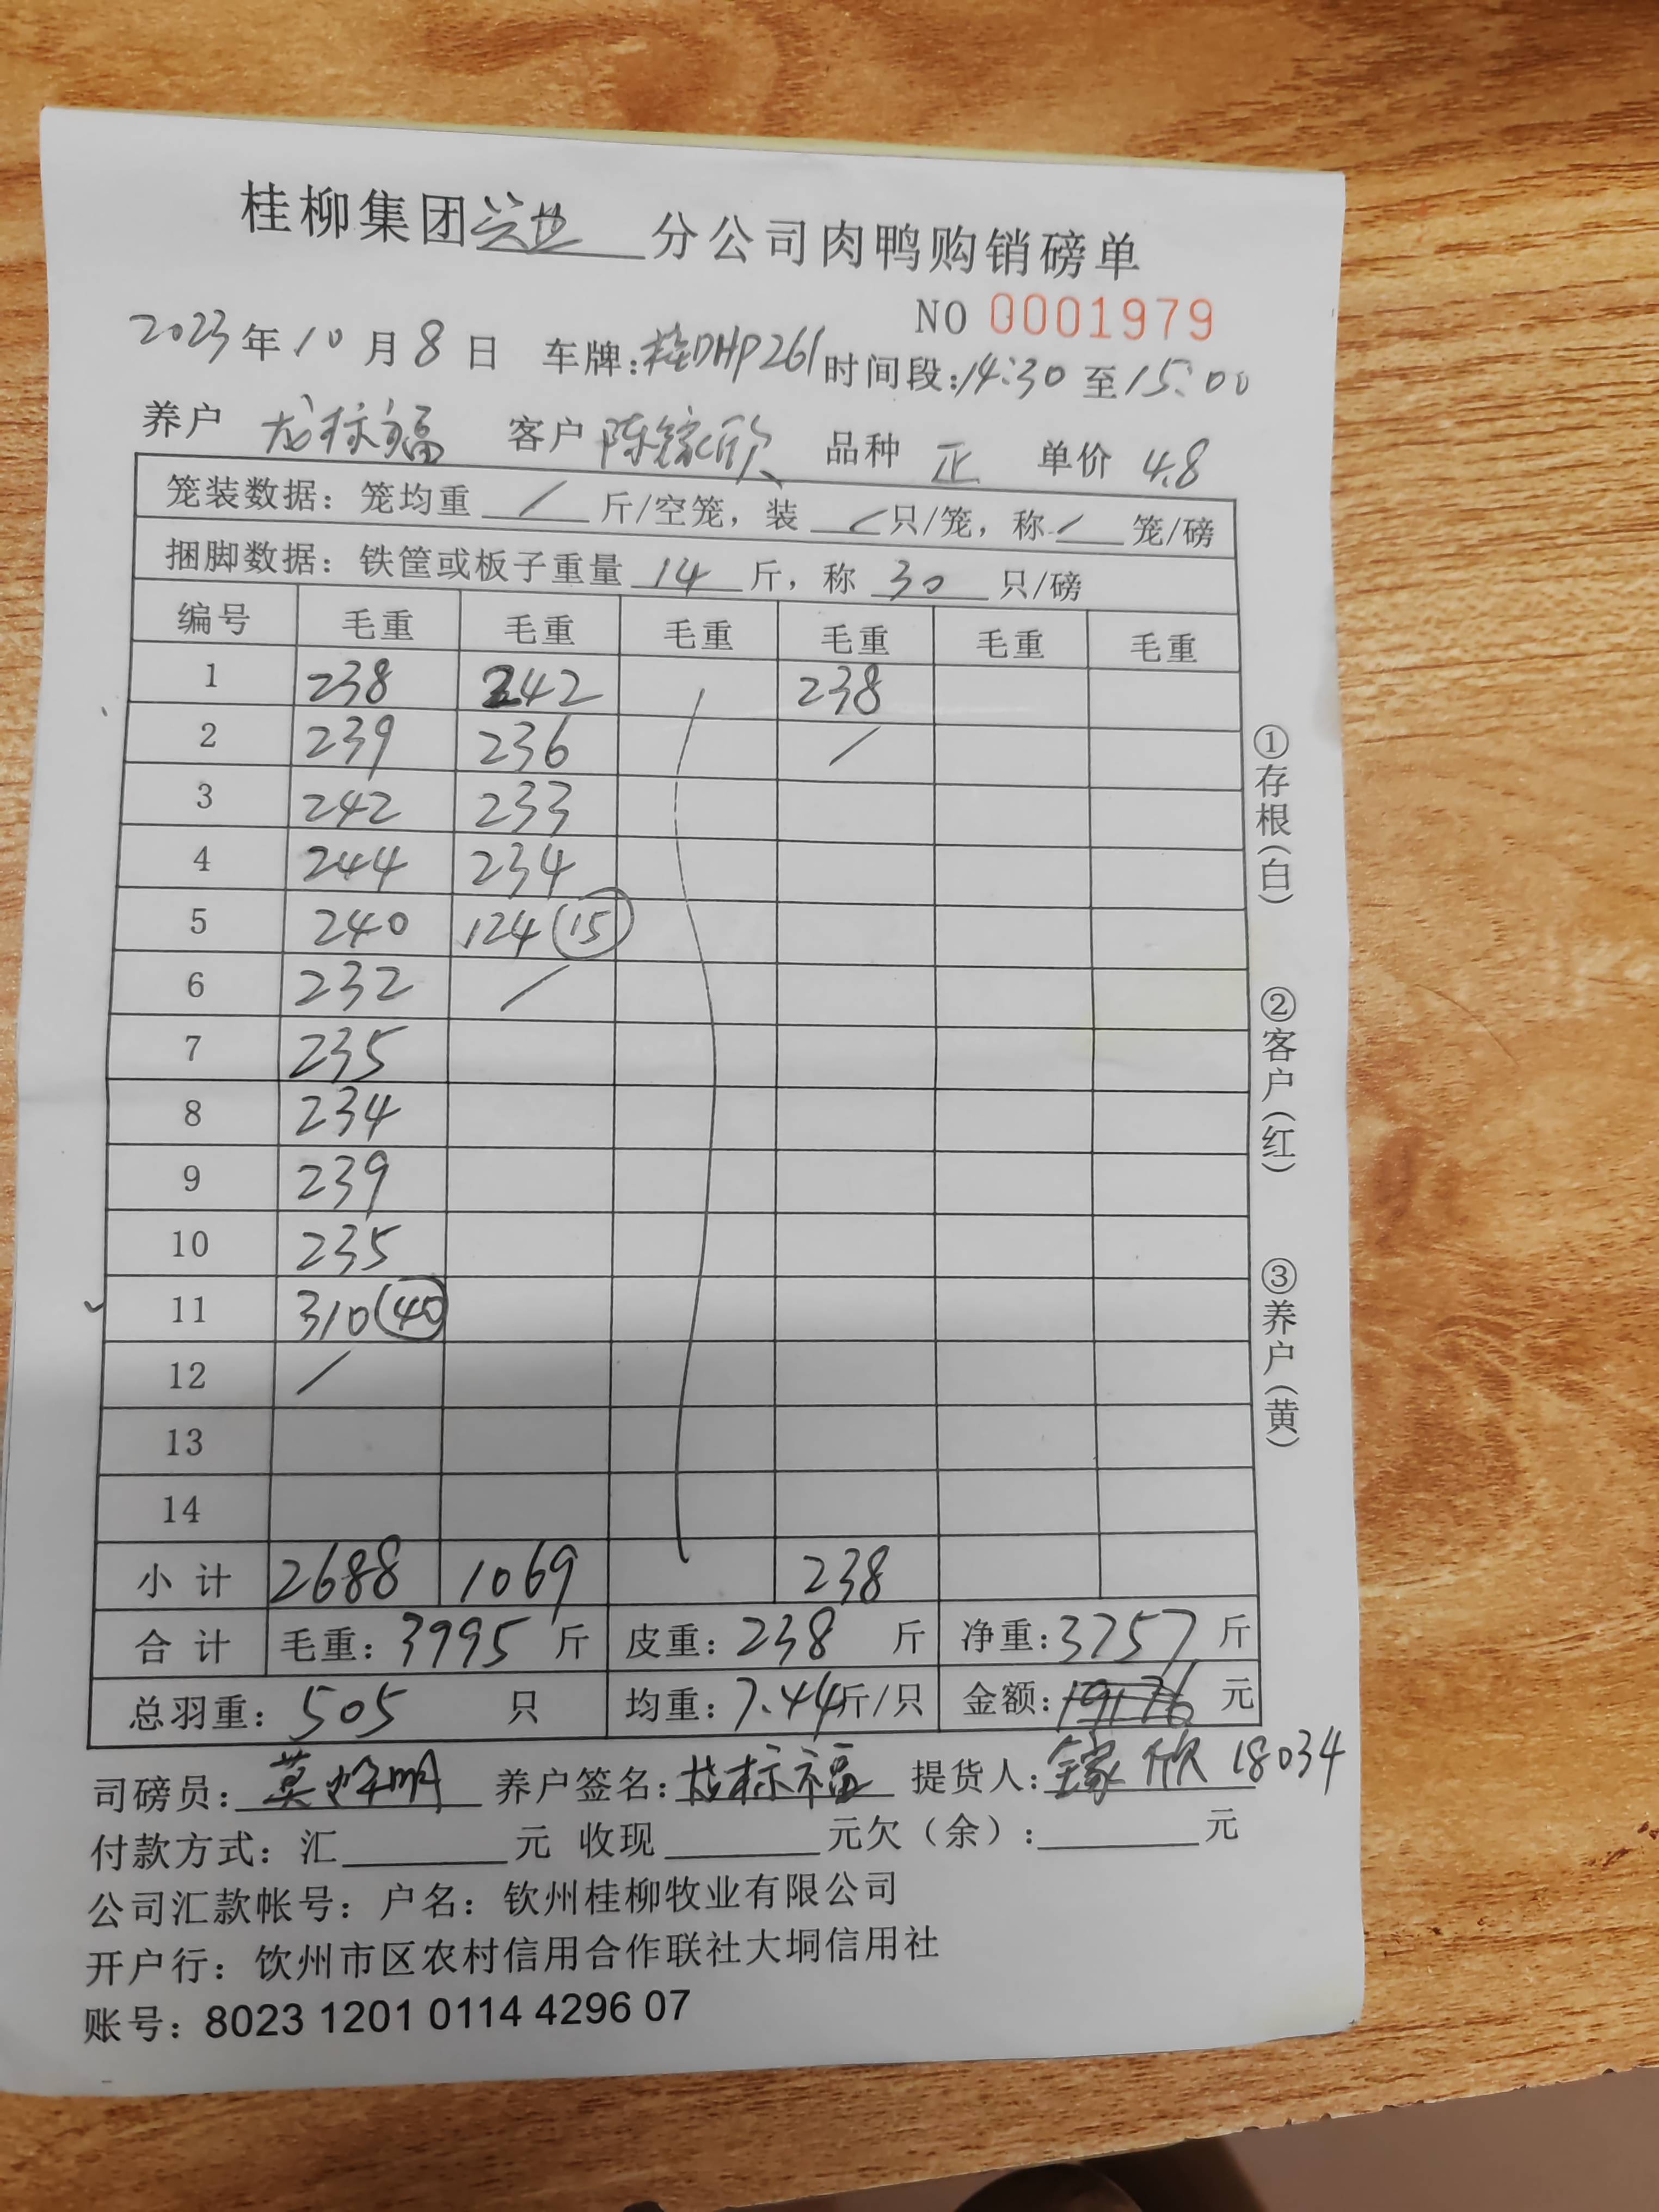 桂柳集团兴业分公司肉鸭购销磅单
NO 0001979
2023年10月8日 车牌:桂DHP261 时间段:14:30至15:00
养户 龙标福 客户 陈镓欣 品种 正 单价 4.8
笼装数据：笼均重 / 斤/空笼，装 / 只/笼，称 / 笼/磅
捆脚数据：铁筐或板子重量 14 斤，称 30 只/磅
编号 毛重 毛重 毛重 毛重 毛重 毛重
1 238 242 238
2 239 236 /
3 242 233
4 244 234
5 240 124 (15)
6 232 /
7 235
8 234
9 239
10 235
11 310 (40)
12 /
13
14
小计 2688 1069 238
合计 毛重：3995斤 皮重：238斤 净重：3757斤
总羽重：505只 均重：7.44斤/只 金额： 元
司磅员： 养户签名：龙标福 提货人：镓欣 18034
付款方式：汇 元 收现 元欠（余）： 元
公司汇款帐号：户名：钦州桂柳牧业有限公司
开户行：钦州市区农村信用合作联社大垌信用社
账号：8023 1201 0114 4296 07
①存根（白）
②客户（红）
③养户（黄）